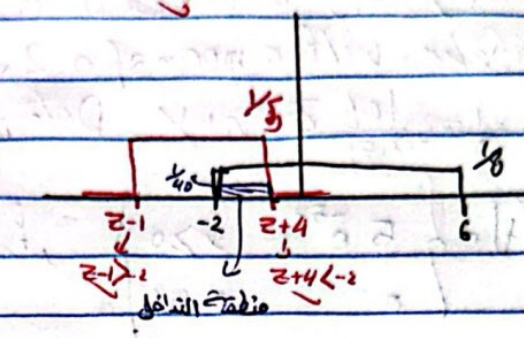 1/5
1/8
1/40
z-1
-2
z+4
6
z-1>-2
z+4<-2
منطقة التداخل